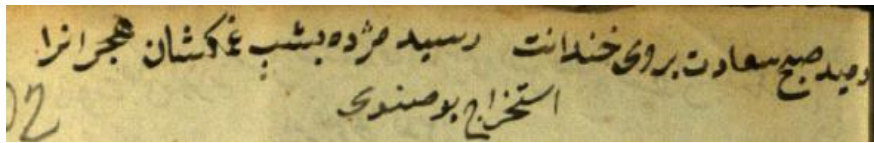 دمید صبح سعادت بروی خندانت رسید مژده بشب غمکشان هجرانرا
استخراج بوصنوی
02